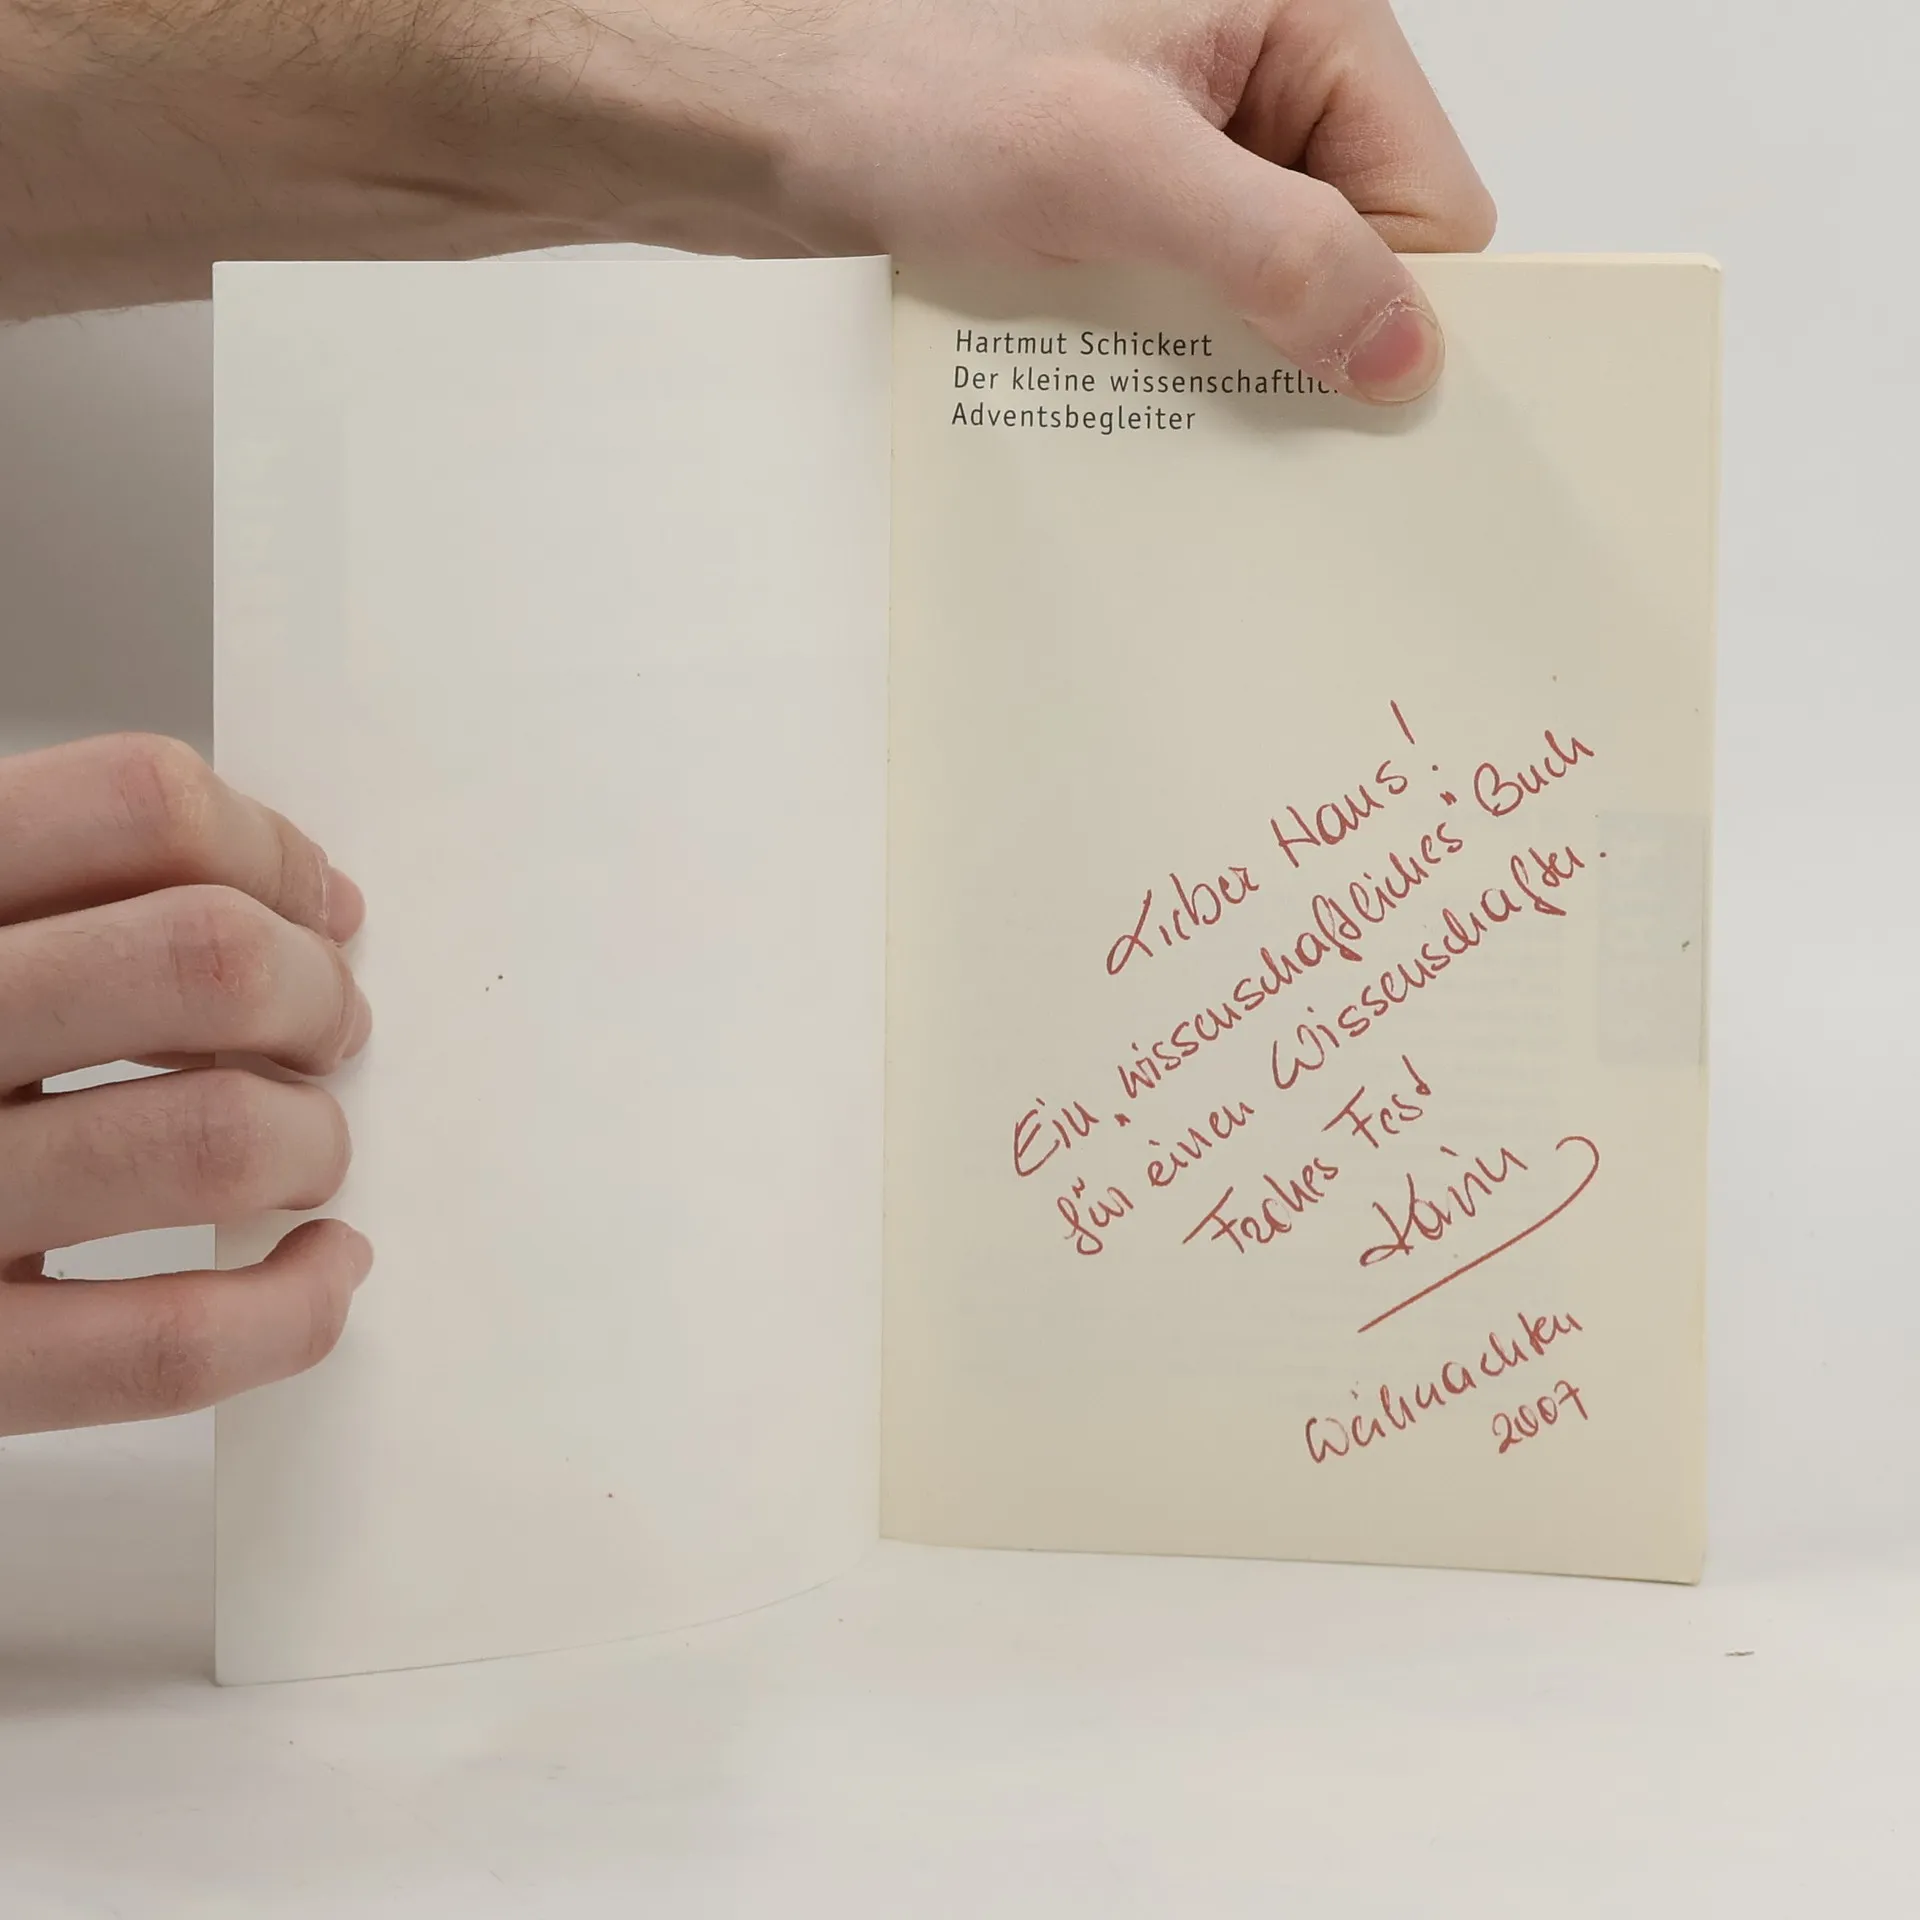 Hartmut Schickert
Der kleine wissenschaftlic
Adventsbegleiter
Lieber Hans!
Ein „wissenschaftliches" Buch
für einen Wissenschafter.
Frohes Fest
Karin
Weihnachten
2007